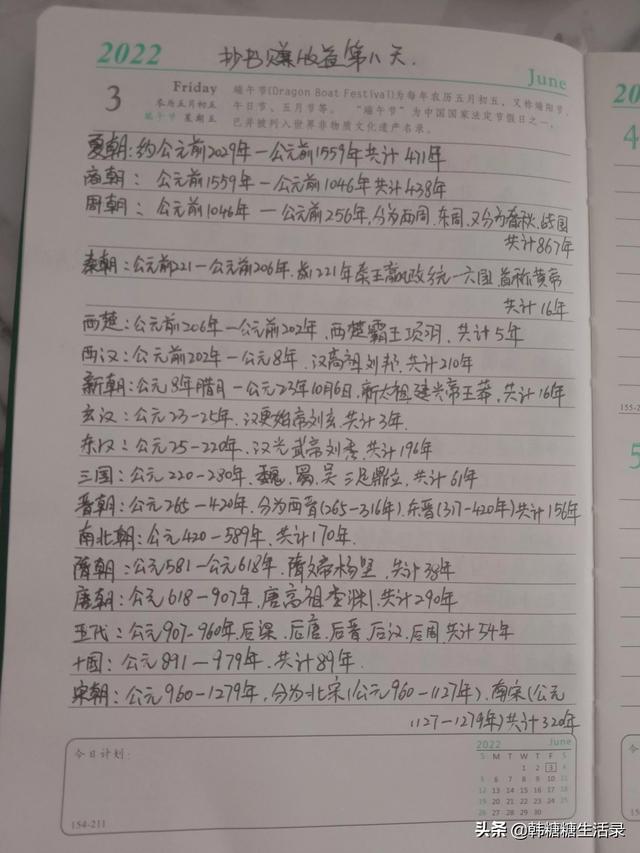 2022
抄书赚收益第八天.
June
3
Friday
农历五月初五
端午节 星期五
端午节(Dragon Boat Festival)为每年农历五月初五，又称端阳节、
午日节、五月节等。 “端午节”为中国国家法定节假日之一，
已并被列入世界非物质文化遗产名录。
夏朝:约公元前2029年一公元前1559年共计471年
商朝: 公元前1559年一公元前1046年共计438年
周朝: 公元前1046年一公元前256年,分为西周.东周.又分为春秋.战国
共计867年
秦朝:公元前221一公元前206年.前221年秦王嬴政统一六国 首称黄帝
共计16年
西楚:公元前206年一公元前202年.西楚霸王项羽.共计5年
西汉:公元前202年一公元8年.汉高祖刘邦.共计210年
新朝:公元8年腊月一公元23年10月6日.新太祖建兴帝王莽,共计16年
玄汉:公元23-25年.汉更始帝刘玄.共计3年.
东汉:公元25-220年.汉光武帝刘秀,共计196年
三国:公元220-280年.魏.蜀.吴三足鼎立.共计61年
晋朝:公元265-420年.分为西晋(265-316年).东晋(317-420年)共计156年
南北朝:公元420-589年.共计170年.
隋朝:公元581一公元618年.隋文帝杨坚.共计38年
唐朝:公元618-907年,唐高祖李渊.共计290年
五代:公元907-960年.后梁.后唐.后晋.后汉.后周.共计54年
十国:公元891-979年.共计89年.
宋朝:公元960-1279年,分为北宋(公元960-1127年).南宋(公元
1127-1279年)共计320年
今日计划:
2022 June
S M T W T F S
1 2 3 4
5 6 7 8 9 10 11
12 13 14 15 16 17 18
19 20 21 22 23 24 25
26 27 28 29 30
154-211
20
4
155-2
5
头条 @韩糖糖生活录